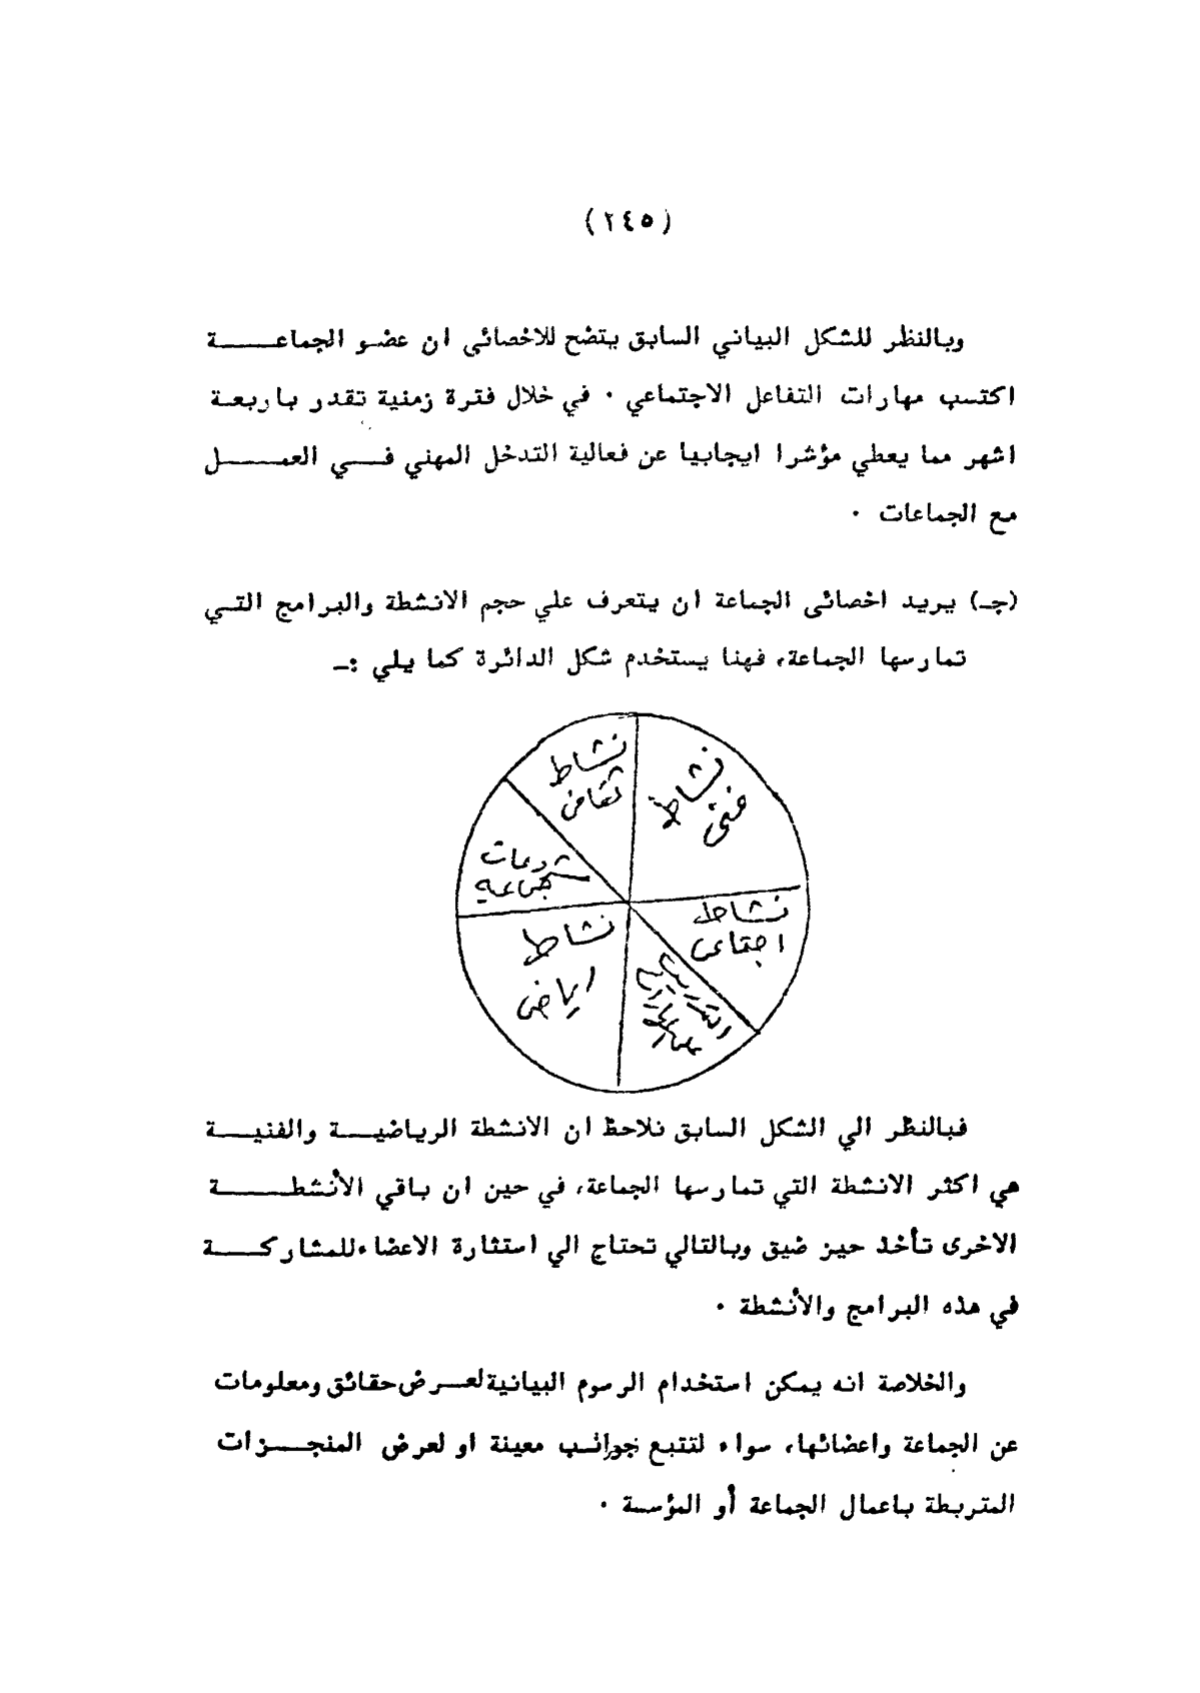 (٢٤٥)
وبالنظر للشكل البياني السابق يتضح للاخصائى ان عضو الجماعة
اكتسب مهارات التفاعل الاجتماعي . في خلال فترة زمنية تقدر باربعة
اشهر مما يعطي مؤشرا ايجابيا عن فعالية التدخل المهني في العمل
مع الجماعات .
(جـ) يريد اخصائى الجماعة ان يتعرف علي حجم الانشطة والبرامج التي
تمارسها الجماعة، فهنا يستخدم شكل الدائرة كما يلي :ـ
نشاط
ثقافى
نشاط
فنى
جماعية
نشاط
اجتماعى
نشاط
رياضى
التدريب
فبالنظر الي الشكل السابق نلاحظ ان الانشطة الرياضية والفنية
هي اكثر الانشطة التي تمارسها الجماعة، في حين ان باقي الأنشطة
الاخرى تأخذ حيز ضيق وبالتالي تحتاج الي استثارة الاعضاء للمشاركة
في هذه البرامج والأنشطة .
والخلاصة انه يمكن استخدام الرسوم البيانية لعرض حقائق ومعلومات
عن الجماعة واعضائها، سواء لتتبع جوانب معينة او لعرض المنجزات
المتربطة باعمال الجماعة أو المؤسسة .